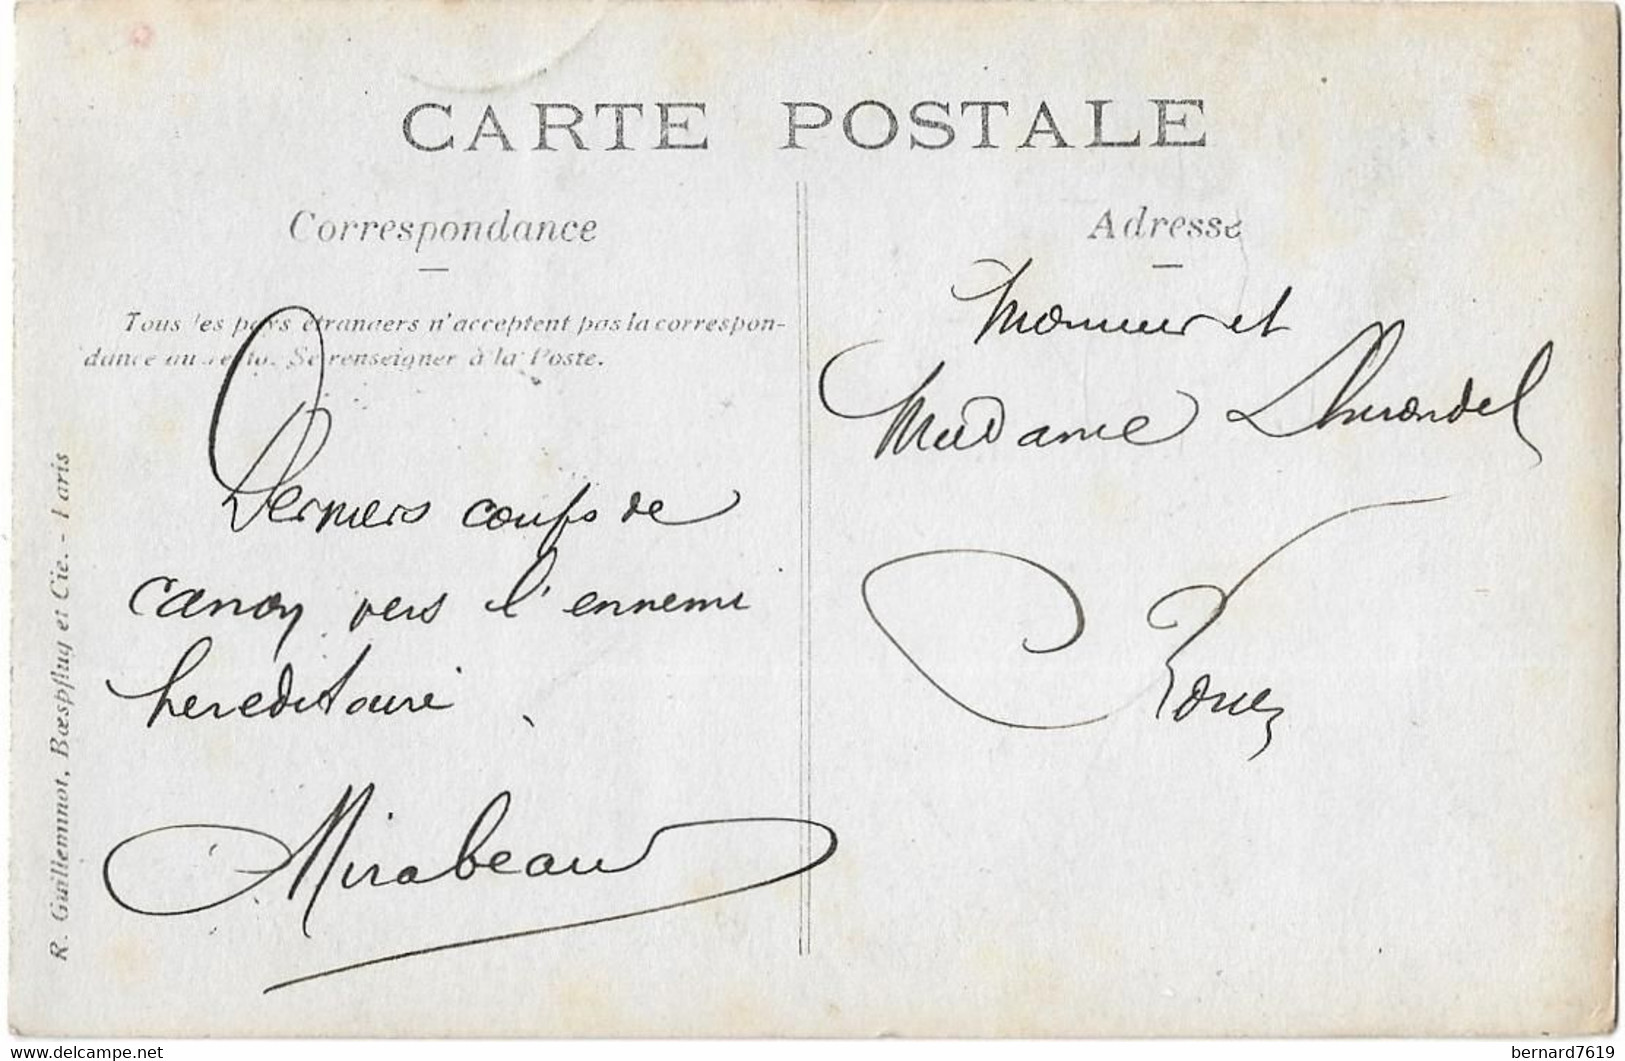 CARTE POSTALE
Correspondance
Tous les pays étrangers n'acceptent pas la correspon-
dance au recto. Se renseigner à la Poste.
Derniers coups de
canon vers l'ennemi
hereditaire
Mirabeau
R. Guilleminot, Bœspflug et Cie. - Paris
Adresse
Monsieur et
Madame
Rouen
bernard7619